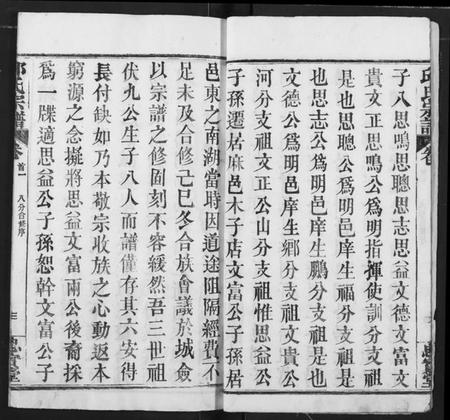 子八思鳴思聰思志思益文德文富文
貴文正思鳴公爲明指揮使訓分支祖
是也思聰公爲明邑庠生福分支祖是
也思志公爲明邑庠生鵬分支祖是也
文德公爲明邑庠生鄉分支祖文貴公
河分支祖文正公山分支祖惟思益公
子孫遷居麻邑木子店文富公子孫居
邑東之南湖當時因道途阻隔經費不
足未及合修己巳冬合族會議於城僉
以宗譜之修固刻不容緩然吾三世祖
伏九公生子八人而譜僅存其六安得
長付缺如乃本敬宗收族之心動返本
窮源之念擬將思益文富兩公後裔採
爲一牒適思益公子孫恕幹文富公子
邱氏宗譜
卷首一
八分合修序